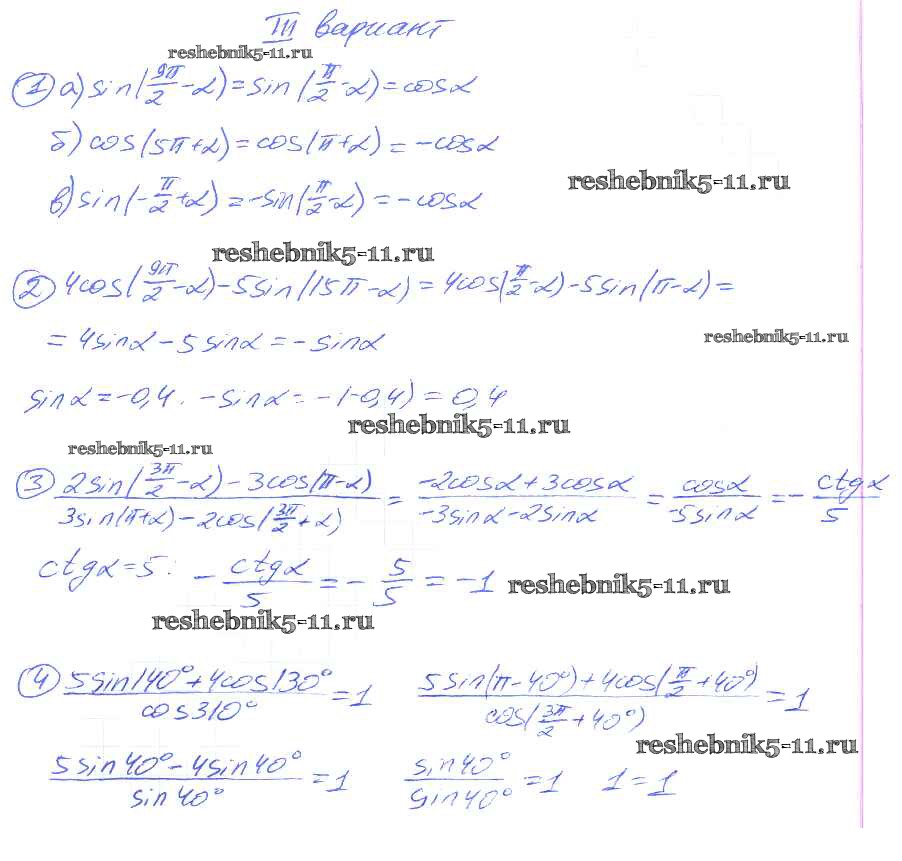 III вариант
reshebnik5-11.ru
① а) sin(9π/2 - α) = sin(π/2 - α) = cosα
б) cos(5π+α) = cos(π+α) = -cosα
reshebnik5-11.ru
в) sin(-π/2 + α) = -sin(π/2 - α) = -cosα
reshebnik5-11.ru
② 4cos(9π/2 - α) - 5sin(15π - α) = 4cos(π/2 - α) - 5sin(π - α) =
= 4sinα - 5sinα = -sinα
reshebnik5-11.ru
sinα = -0,4. -sinα = -(-0,4) = 0,4
reshebnik5-11.ru
reshebnik5-11.ru
③ (2sin(3π/2 - α) - 3cos(π-α))/(3sin(π+α) - 2cos(3π/2 + α)) = (-2cosα + 3cosα)/(-3sinα - 2sinα) = cosα/(-5sinα) = -ctgα/5
ctgα = 5: -ctgα/5 = -5/5 = -1
reshebnik5-11.ru
reshebnik5-11.ru
④ (5sin140° + 4cos130°)/cos310° = 1 (5sin(π - 40°) + 4cos(π/2 + 40°))/cos(3π/2 + 40°) = 1
reshebnik5-11.ru
(5sin40° - 4sin40°)/sin40° = 1 sin40°/sin40° = 1 1 = 1